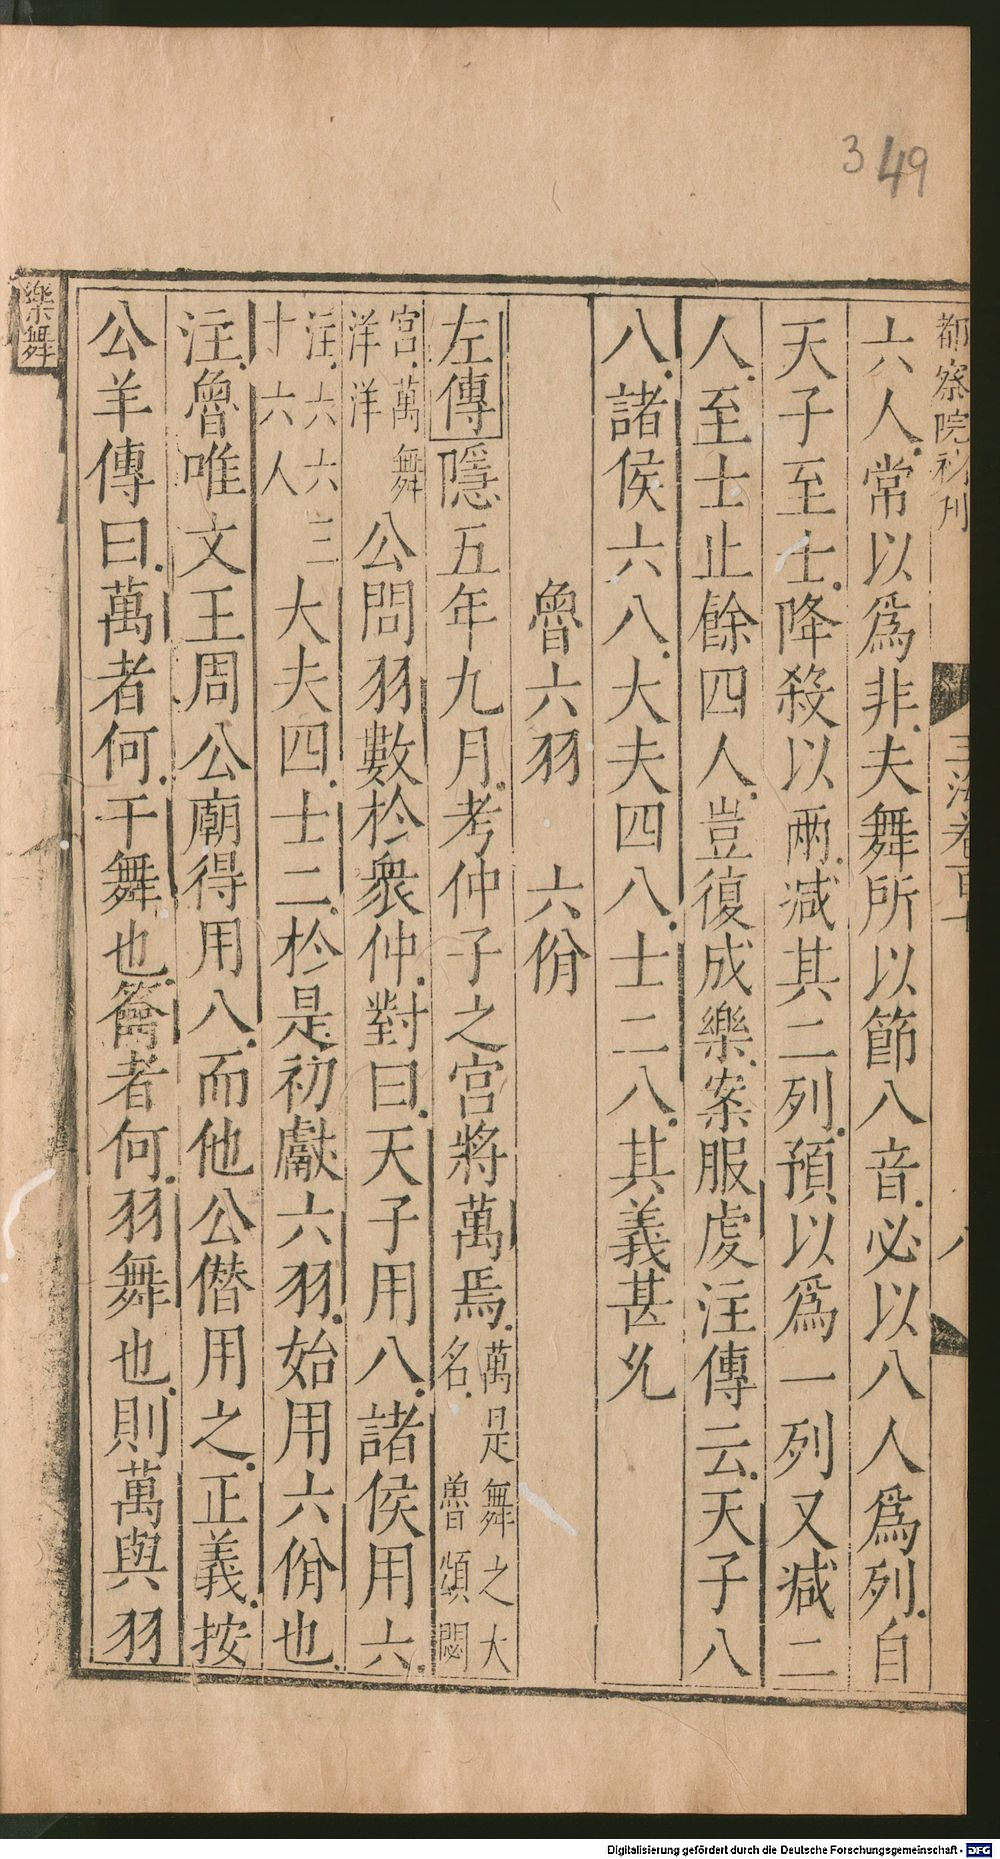 349
都察院初刊
玉海卷百十
八
六人常以爲非夫舞所以節八音必以八人爲列自
天子至士降殺以兩减其二列預以爲一列又减二
人至士止餘四人豈復成樂案服虔注傳云天子八
八諸侯六八大夫四八士二八其義甚允
魯六羽 六佾
左傳隱五年九月考仲子之宮將萬焉萬是舞之大
名 魯頌閟
宮萬舞
洋洋
公問羽數於衆仲對曰天子用八諸侯用六
注六六三
十六人
大夫四士二於是初獻六羽始用六佾也
注魯唯文王周公廟得用八而他公僭用之正義按
公羊傳曰萬者何干舞也籥者何羽舞也則萬與羽
樂舞
Digitalisierung gefördert durch die Deutsche Forschungsgemeinschaft - DFG